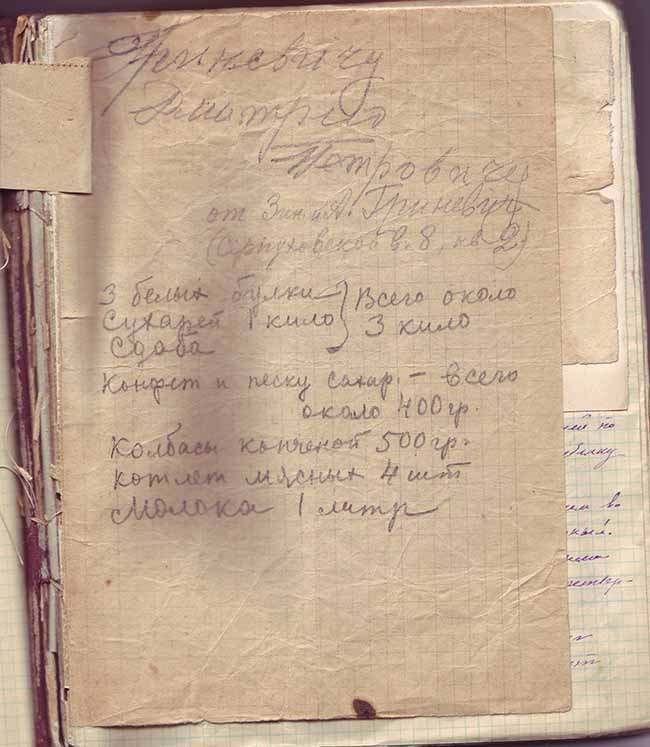 Гриневичу
Дмитрию
Петровичу
от Зин. и А. Гриневич
(Серпуховская в. 8, кв 2)
3 белых булки } Всего около
Сухарей 1 кило } 3 кило
Сдоба
Конфет и песку сахар. – всего
около 400 гр.
Колбасы копченой 500 гр.
котлет мясных 4 шт
Молока 1 литр